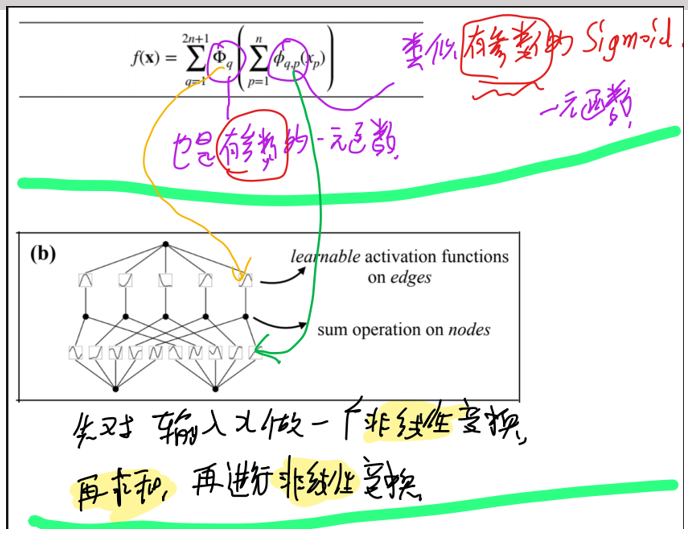 f(x) = ∑_{q=1}^{2n+1} Φ_q ( ∑_{p=1}^{n} ϕ_{q,p}(x_p) )
类似有参数的 Sigmoid.
一元函数
也是有参数的一元函数
(b)
learnable activation functions
on edges
sum operation on nodes
先对输入x做一个非线性变换,
再求和, 再进行非线性变换